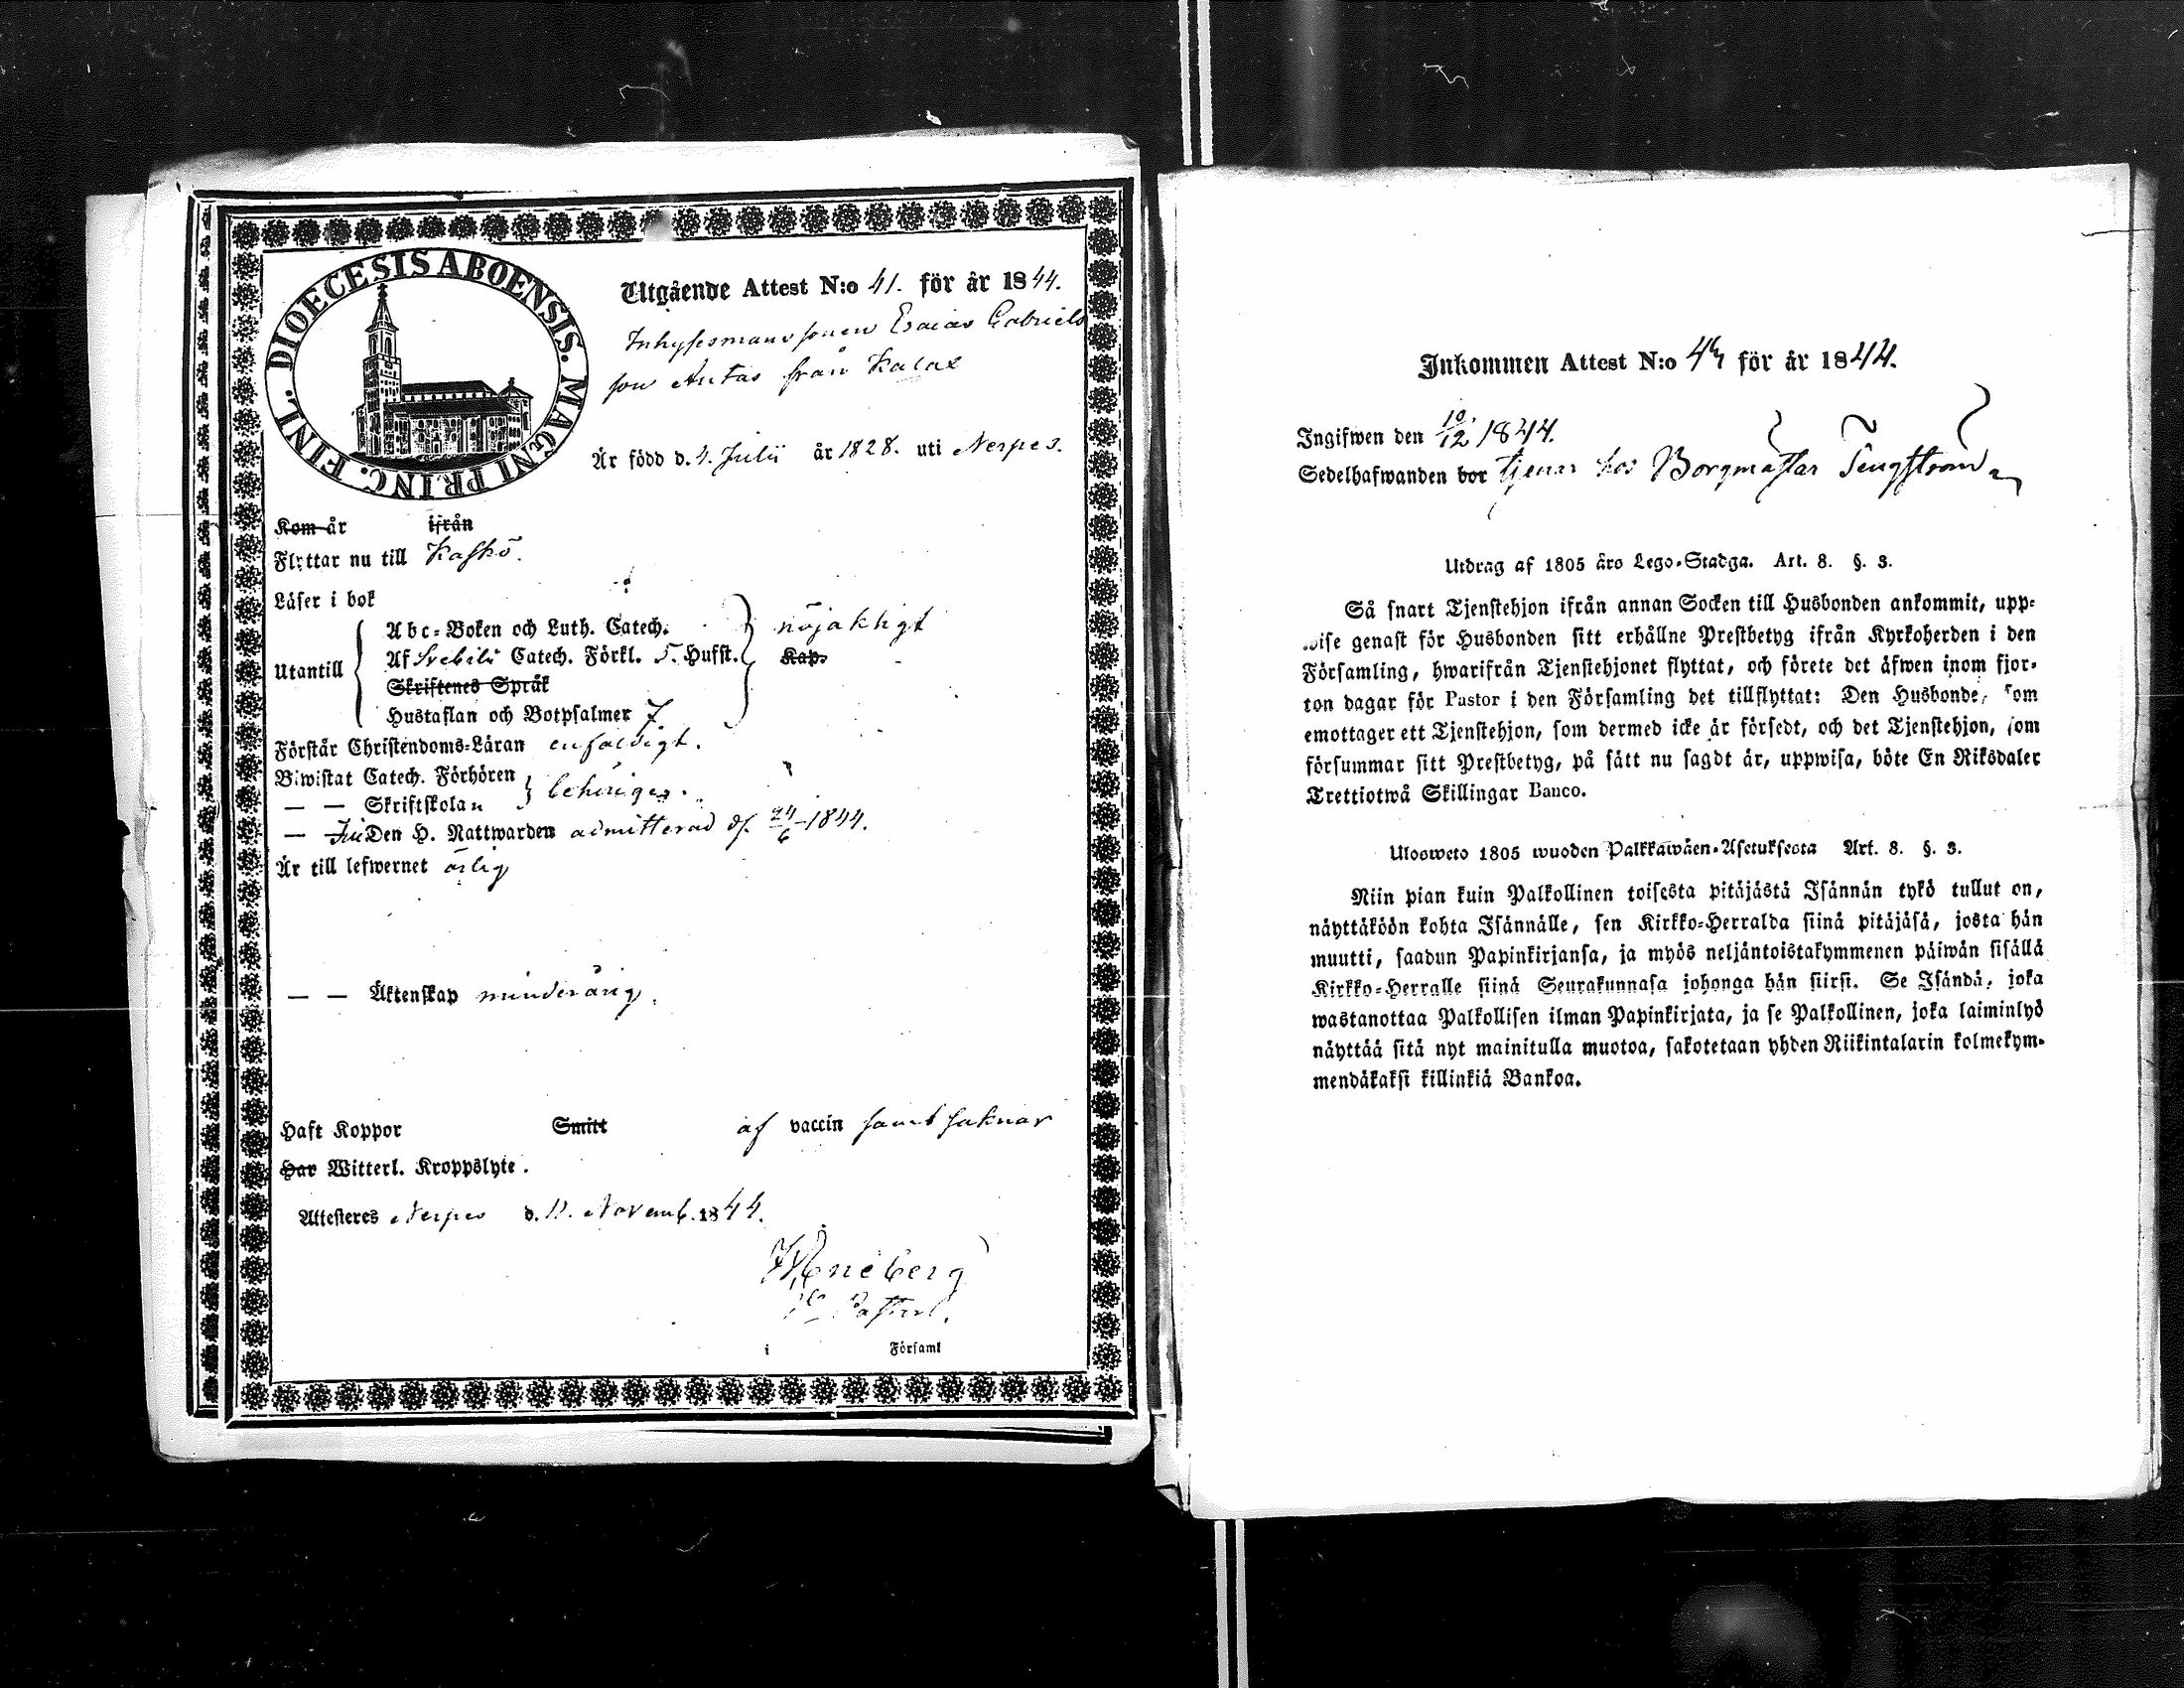 DIOECESIS ABOENSIS. MAGNI PRINC. FINL.
Utgående Attest N:o 41. för år 1844.
Inhysesmanssonen Esaias Gabriels
son Antas från Kalax
Är född d. 4. Julii år 1828. uti Nerpes.
Kom år ifrån
Flyttar nu till Kaskö.
Läser i bok
Abc-Boken och Luth. Catech. nöjaktigt
Utantill Af Svebilii Catech. Förkl. 5. Hufst. Kap.
Skriftenes Språk
Hustaflan och Botpsalmer 7
Förstår Christendoms-Läran enfaldigt.
Biwistat Catech. Förhören
— — Skriftskolan behörigen.
— Den H. Nattwarden admitterad d. 24/6 1844.
Är till lefwernet ärlig
— — Äktenskap minderårig.
Haft Koppor Smitt af vaccin samt saknar
Har Witterl. Kroppslyte.
Attesteres Nerpes d. Novemb. 1844.
i Församl
Inkommen Attest N:o för år 1844.
Ingifwen den 10/12 1844.
Sedelhafwanden bor tjenar hos Borgmästar Tengström
Utdrag af 1805 års Lego-Stadga. Art. 8. §. 3.
Så snart Tjenstehjon ifrån annan Socken till Husbonden ankommit, upp-
wise genast för Husbonden sitt erhållne Prestbetyg ifrån Kyrkoherden i den
Församling, hwarifrån Tjenstehjonet flyttat, och förete det äfwen inom fjor-
ton dagar för Pastor i den Församling det tillflyttat: Den Husbonde, som
emottager ett Tjenstehjon, som dermed icke är försedt, och det Tjenstehjon, som
försummar sitt Prestbetyg, på sätt nu sagdt är, uppwisa, böte En Riksdaler
Trettiotwå Skillingar Banco.
Ulosweto 1805 wuoden Palkkawäen-Asetuksesta Art. 8. §. 3.
Niin pian kuin Palkollinen toisesta pitäjästä Isännän tykö tullut on,
näyttäköön kohta Isännälle, sen Kirkko-Herralda siinä pitäjäsä, josta hän
muutti, saadun Papinkirjansa, ja myös neljäntoistakymmenen päiwän sisällä
Kirkko-Herralle siinä Seurakunnasa johonga hän siirsi. Se Isändä, joka
wastanottaa Palkollisen ilman Papinkirjata, ja se Palkollinen, joka laiminlyö
näyttää sitä nyt mainitulla muotoa, sakotetaan yhden Riikintalarin kolmekym-
mendäkaksi killinkiä Bankoa.